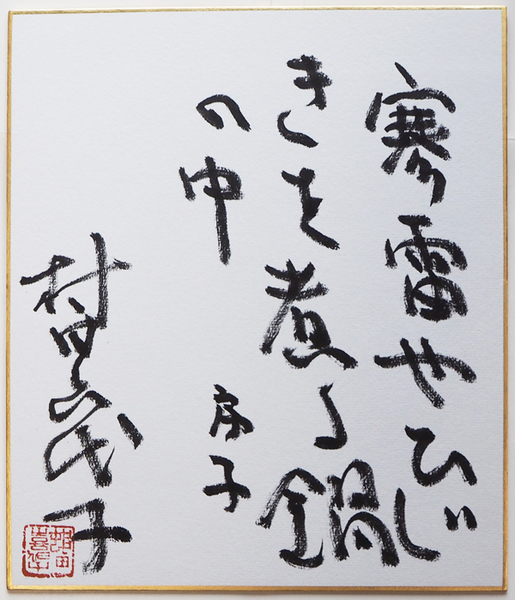 寒雷やひじ
きを煮る鍋
の中
子
村田喜代子